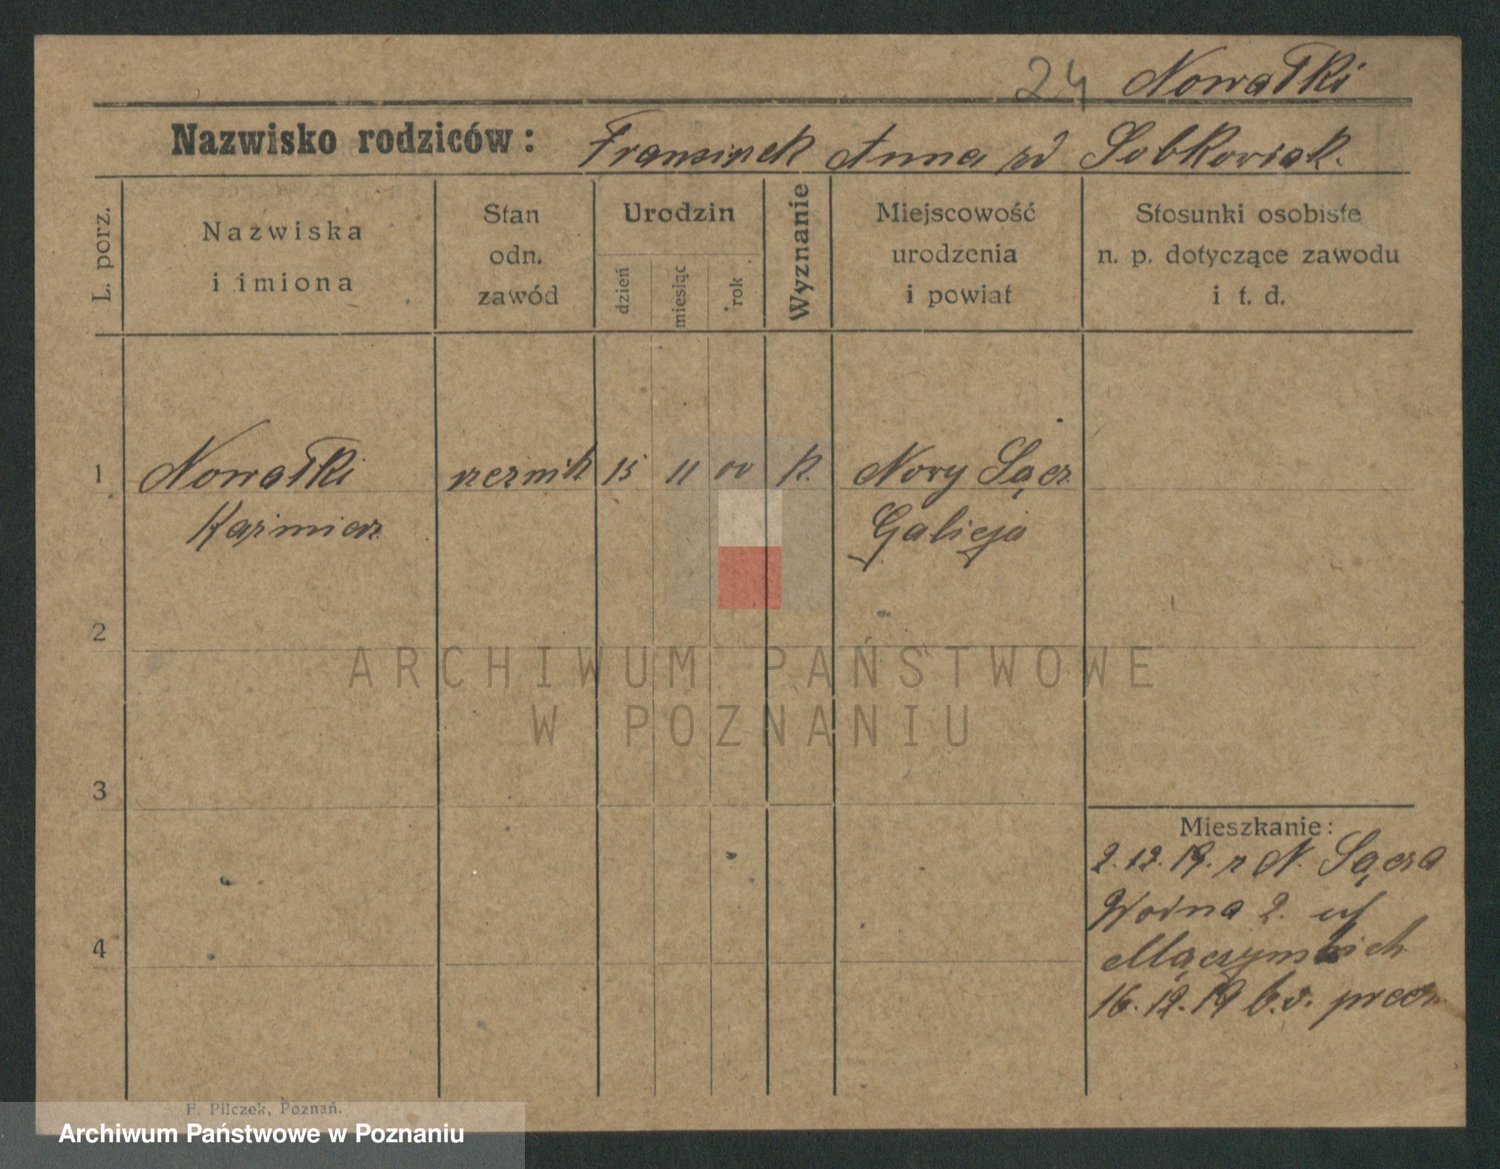 24 Nowatki
Nazwisko rodziców: Franciszek Anna zd Sobkowiak.
L. porz.
Nazwiska
i imiona
Stan
odn.
zawód
Urodzin
dzień
miesiąc
rok
Wyznanie
Miejscowość
urodzenia
i powiat
Stosunki osobiste
n. p. dotyczące zawodu
i t. d.
1 Nowatki rzeźnik 15 11 00 k. Nowy Sącz
Kazimierz Galicja
2
ARCHIWUM PAŃSTWOWE
W POZNANIU
3
Mieszkanie:
2.12.19. z N. Sącza
2. u
4
16.12.19
F. Pilczek, Poznań.
Archiwum Państwowe w Poznaniu